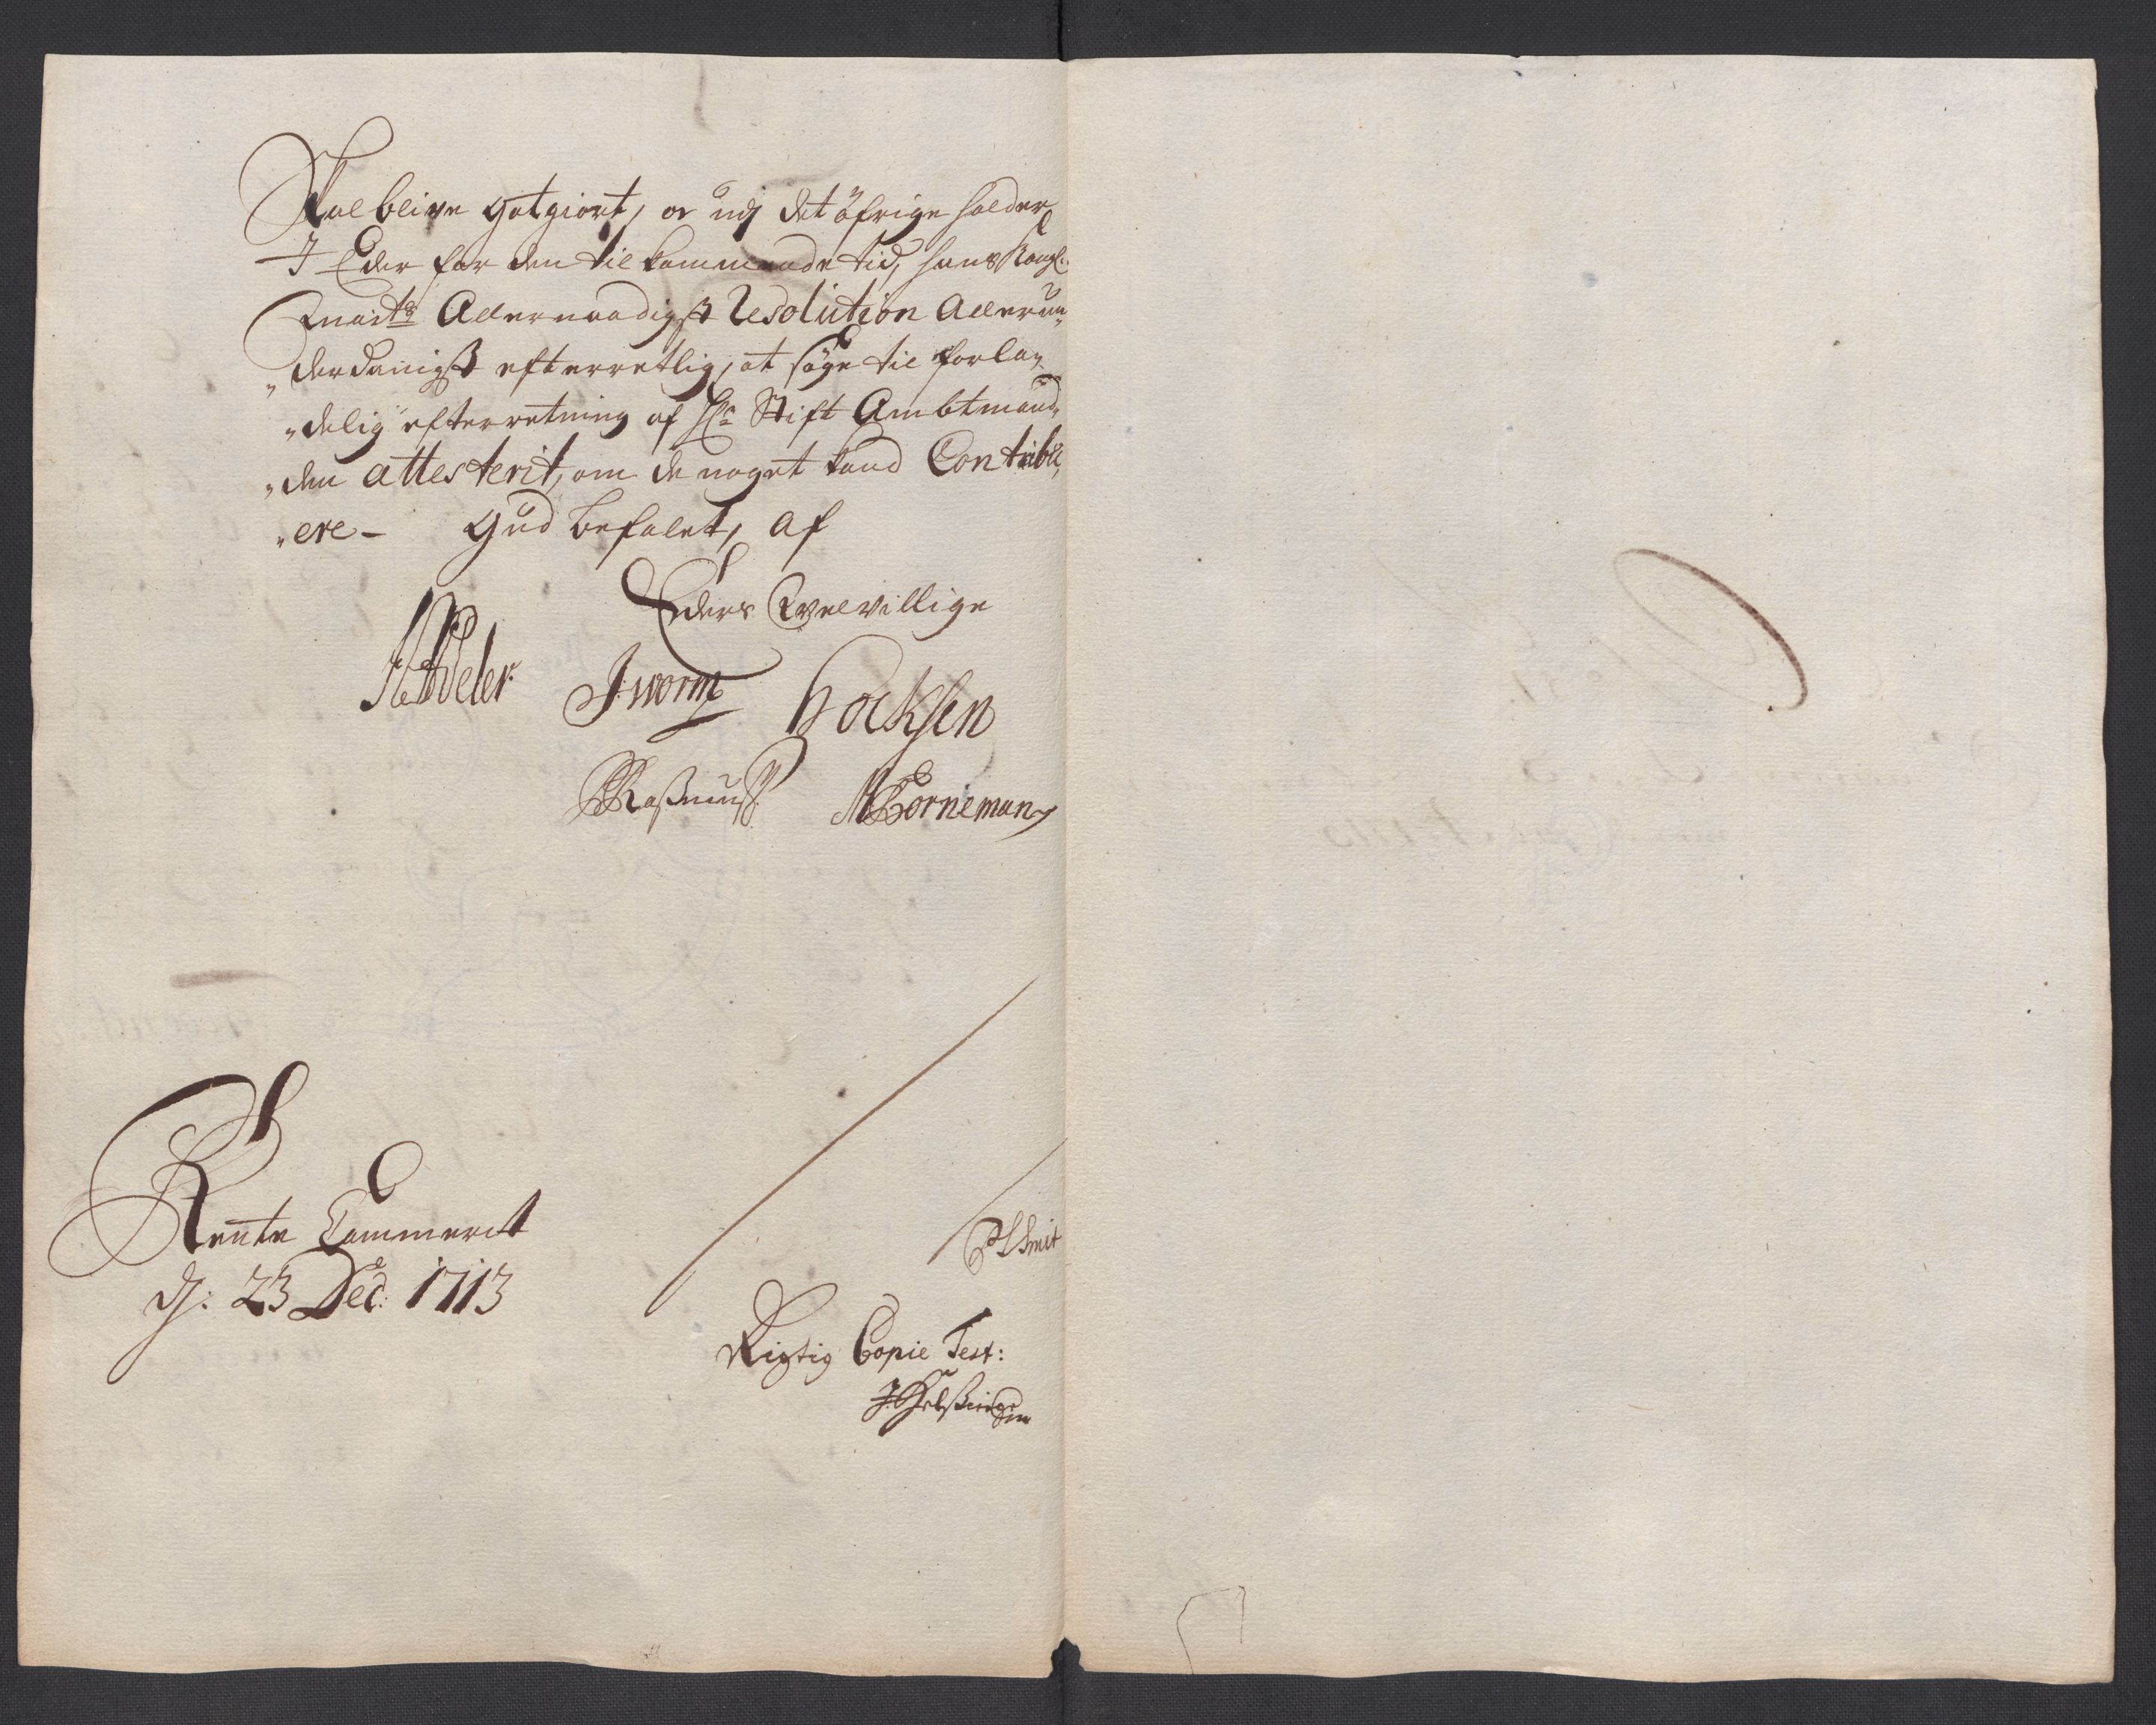 Skal blive gotgiort, og udj det öfrige holder
I Eder for den tilkommende tid, hans Kongl:
Maÿts Allernaadigst Resolution allerun„
„derdanigst efterretlig, at söge til forla„
„delig efterretning af Hr Stift Ambtmand„
„den attesterit, om de noget kand Contribu„
„ere - Gud befalet, af
Eders Velvillige
Adeler J: Worm Hocksen
Rasmus Horneman
Rente Cammerit
dj: 23 Dec: 1713
Smit
Rigtig Copie Test: